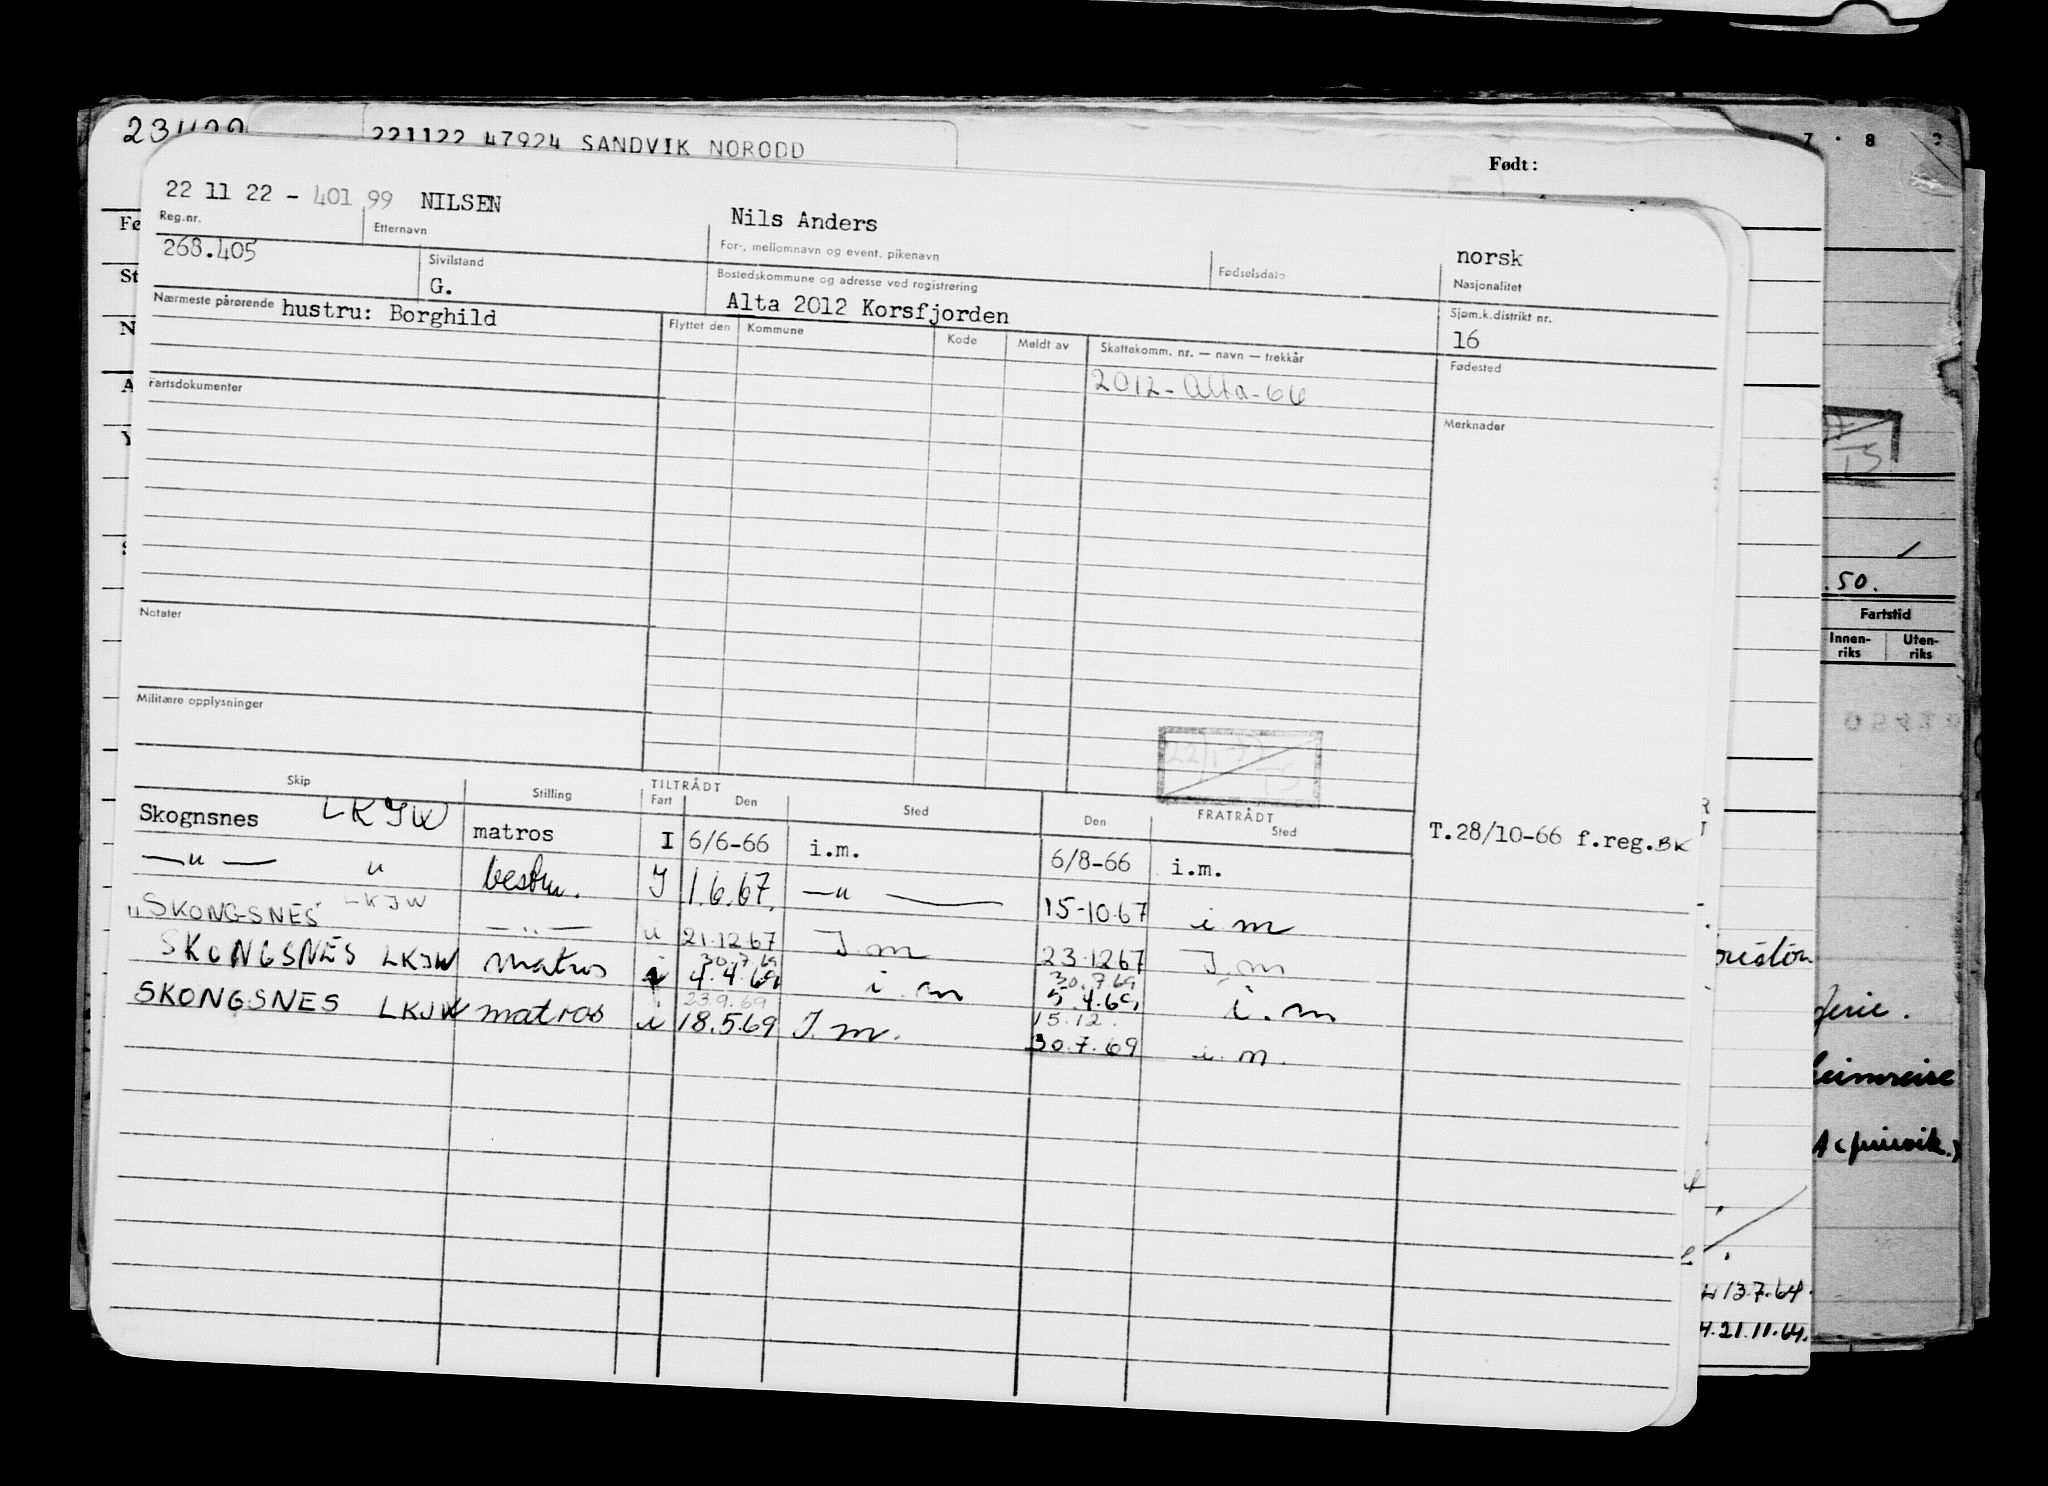 221122 47924 SANDVIK NORODD
Født:
22 11 22 - 401 99 NILSEN
Nils Anders
norsk
Reg.nr.
Etternavn
For-, mellomnavn og event. pikenavn
Fødselsdato
Nasjonalitet
268.405
Sivilstand
G.
Bostedskommune og adresse ved registrering
Alta 2012 Korsfjorden
Sjøm.k.distrikt nr.
16
Nærmeste pårørende hustru: Borghild
Flyttet den
Kommune
Kode
Meldt av
Skattekomm. nr. — navn — trekkår
Fødested
2012 - Alta - 66
Fartsdokumenter
Merknader
Notater
Militære opplysninger
Skip
Stilling
TILTRÅDT
Fart
Den
Sted
FRATRÅDT
Den
Sted
Skognsnes LKJW matros I 6/6-66 i.m. 6/8-66 i.m. T.28/10-66 f.reg. BK
—"— " bestm. I 1.6.67. —"— 15-10-67 i m
" SKONGSNES LKJW —"— " 21.12.67 I m 23.12.67 I.m
30.7.69 30.7.69
SKONGSNES LKJW matros i 4.4.69 i.m 5.4.69 i.m
23.9.69 15.12.
SKONGSNES LKJW matros i 18.5.69 I.m. 30.7.69 i.m.
.50.
Fartstid
Innen-
riks
Uten-
riks
13.7.64.
21.11.64.